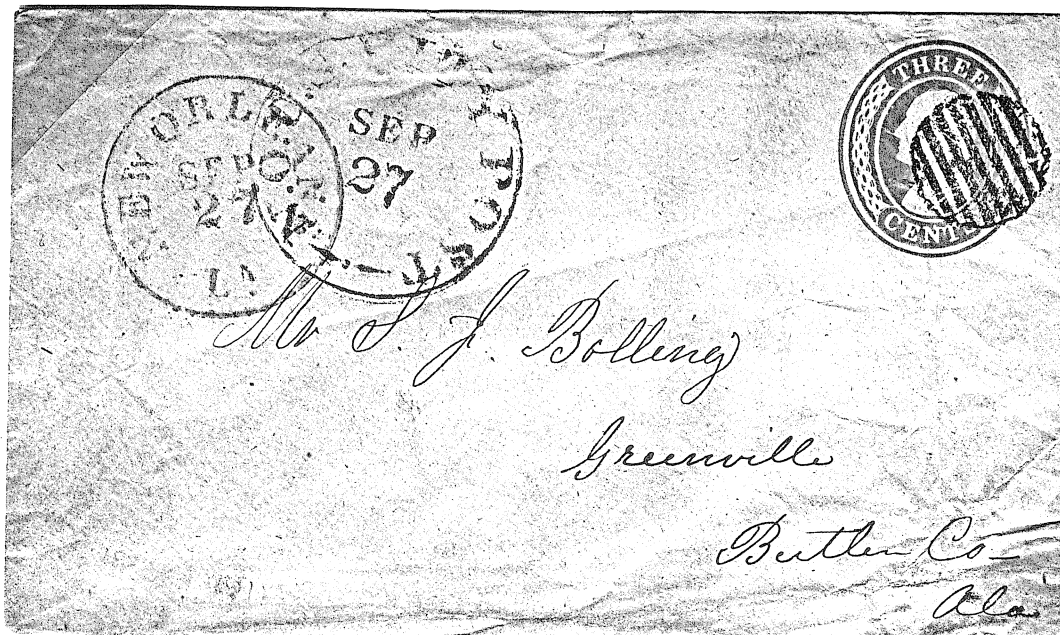 NEW ORLEANS
SEP
27
LA
SEP
27
POST
THREE
CENTS
Mr S. J. Bolling
Greenville
Butler Co
Ala